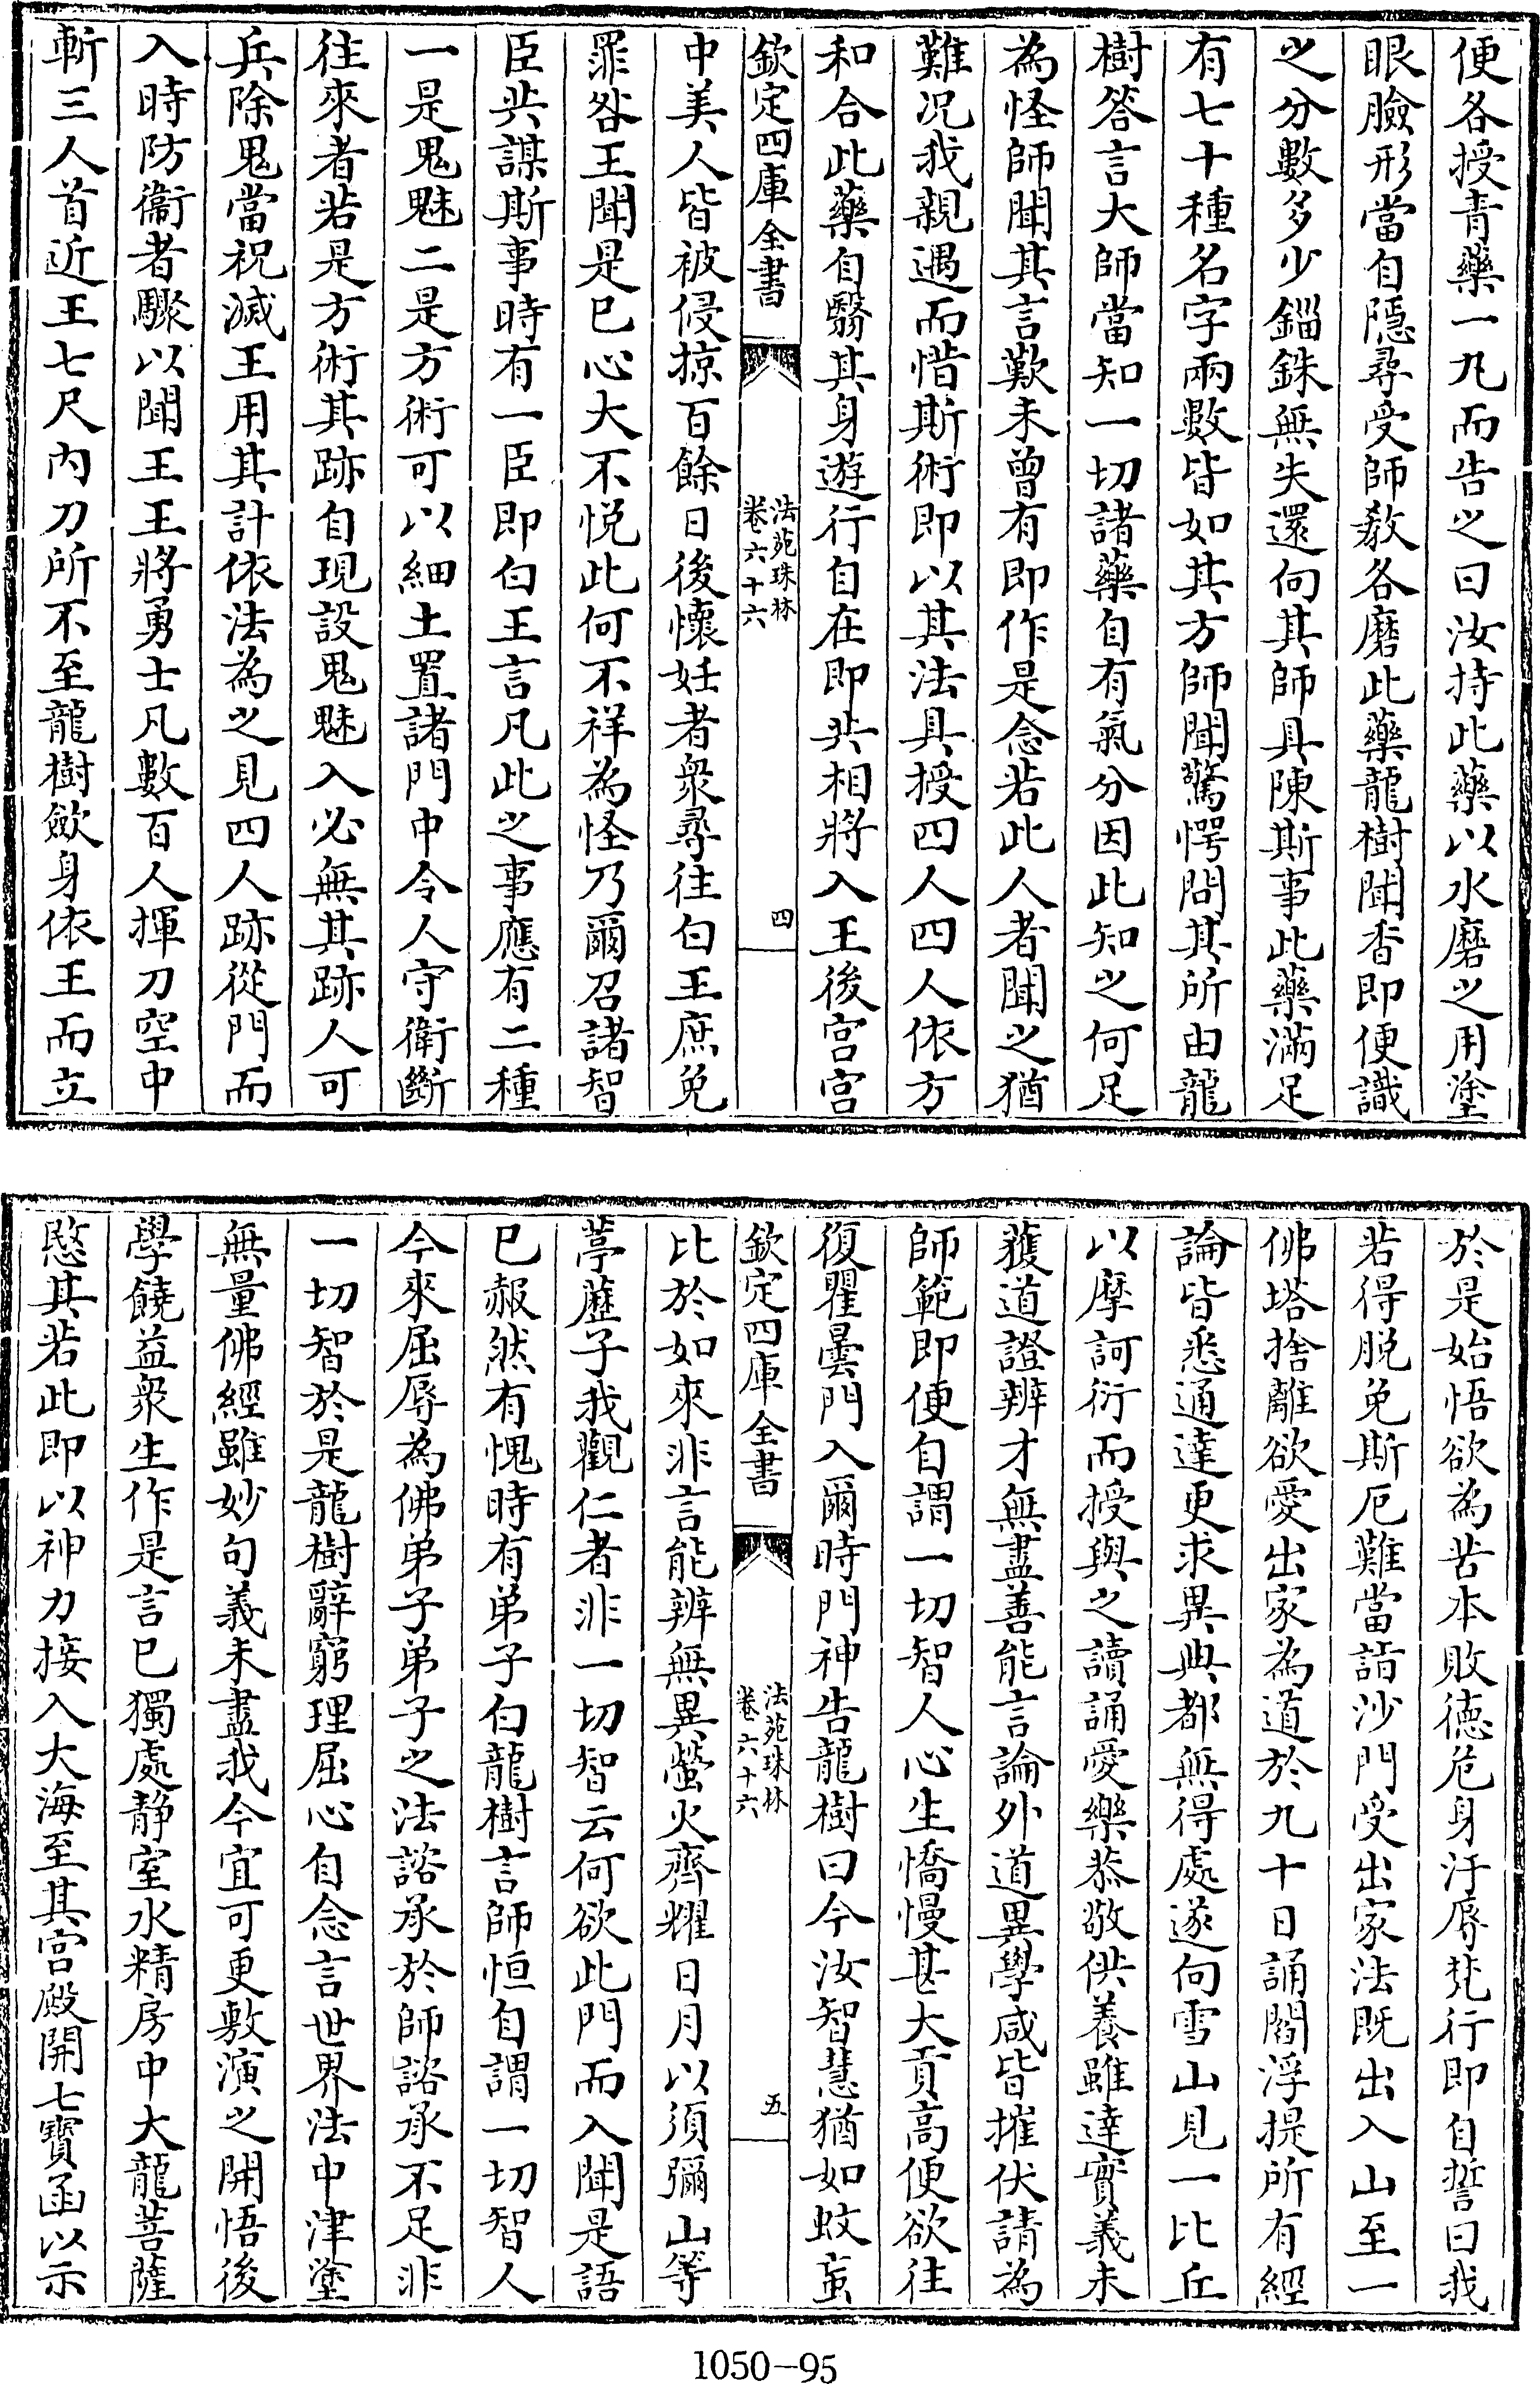 便各授青藥一丸而告之曰汝持此藥以水磨之用塗
眼臉形當自隱尋受師教各磨此藥龍樹聞香即便識
之分數多少錙銖無失還向其師具陳斯事此藥滿足
有七十種名字兩數皆如其方師聞驚愕問其所由龍
樹答言大師當知一切諸藥自有氣分因此知之何足
為怪師聞其言歎未曾有即作是念若此人者聞之猶
難况我親遇而惜斯術即以其法具授四人四人依方
和合此藥自翳其身遊行自在即共相將入王後宫宫
欽定四庫全書
法苑珠林
卷六十六
四
中美人皆被侵掠百餘日後懷妊者衆尋往白王庶免
罪咎王聞是已心大不悦此何不祥為怪乃爾召諸智
臣共謀斯事時有一臣即白王言凡此之事應有二種
一是鬼魅二是方術可以細土置諸門中令人守衛斷
往來者若是方術其跡自現設鬼魅入必無其跡人可
兵除鬼當祝滅王用其計依法為之見四人跡從門而
入時防衞者驟以聞王王將勇士凡數百人揮刀空中
斬三人首近王七尺内刀所不至龍樹歛身依王而立
於是始悟欲為苦本敗德危身汙辱梵行即自誓曰我
若得脱免斯厄難當詣沙門受出家法既出入山至一
佛塔捨離欲愛出家為道於九十日誦閻浮提所有經
論皆悉通達更求異典都無得處遂向雪山見一比丘
以摩訶衍而授與之讀誦愛樂恭敬供養雖達實義未
獲道證辨才無盡善能言論外道異學咸皆摧伏請為
師範即便自謂一切智人心生憍慢甚大貢高便欲往
復瞿曇門入爾時門神告龍樹曰今汝智慧猶如蚊䖟
欽定四庫全書
法苑珠林
卷六十六
五
比於如來非言能辨無異螢火齊耀日月以須彌山等
葶藶子我觀仁者非一切智云何欲此門而入聞是語
已赧然有愧時有弟子白龍樹言師恒自謂一切智人
今來屈辱為佛弟子弟子之法諮承於師諮承不足非
一切智於是龍樹辭窮理屈心自念言世界法中津塗
無量佛經雖妙句義未盡我今宜可更敷演之開悟後
學饒益衆生作是言已獨處静室水精房中大龍菩薩
愍其若此即以神力接入大海至其宫殿開七寶函以示
1050-95